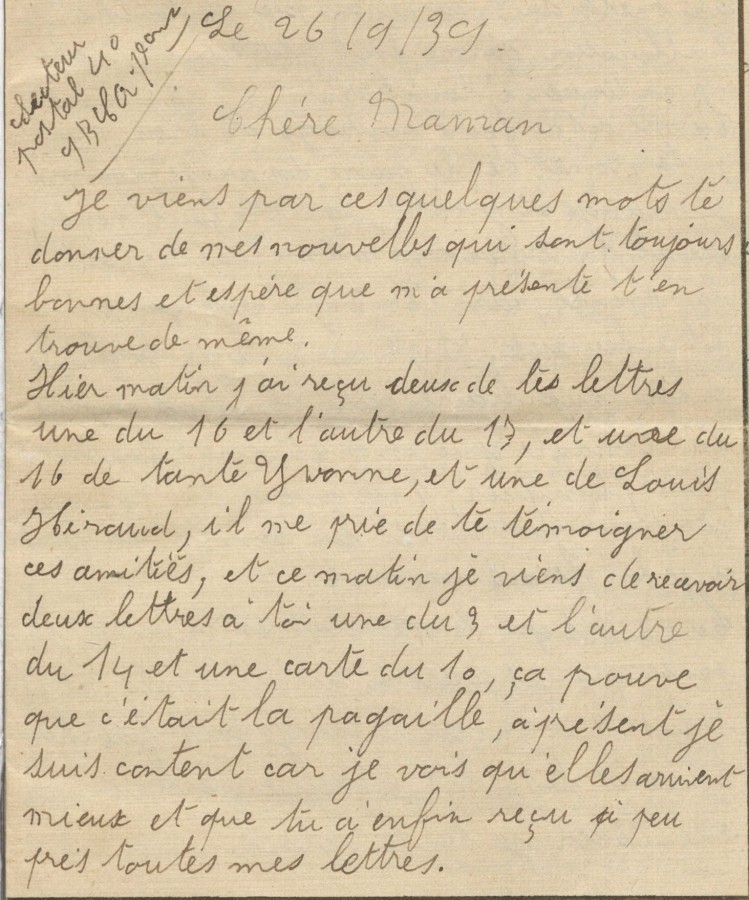 Secteur
postal 410
Le 26/9/39.
Chére Maman
Je viens par ces quelques mots te
donner de mes nouvelles qui sont toujours
bonnes et espére que m'a présente t'en
trouve de même.
Hier matin j'ai reçu deux de tes lettres
une du 16 et l'autre du 17, et une du
16 de tante Yvonne, et une de Louis
il me prie de te témoigner
ces amitiés, et ce matin je viens de recevoir
deux lettres a toi une du 3 et l'autre
du 14 et une carte du 10, ça prouve
que c'était la pagaille, a présent je
suis content car je vois qu'elles arrivent
mieux et que tu a enfin reçu a peu
prés toutes mes lettres.